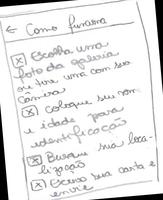 ← Como funciona
☒ Escolha uma
foto da galeria
ou tire uma com seu
camera
☒ coloque seu nome
e idade para
identificação
☒ Busque sua loca-
lização
☒ Escreva sua carta e
envie